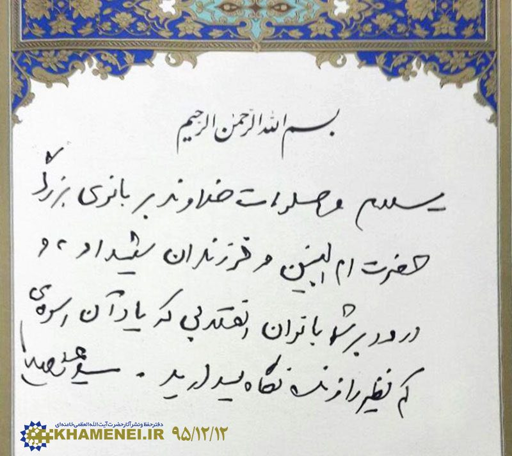 بسم الله الرّحمن الرّحیم
سلام و صلوات خداوند بر بانوی بزرگ
حضرت ام البنین و فرزندان شهید او، و
درود بر شما بانوان انقلابی که یاد آن اسوه‌ی
کم نظیر را زنده نگاه میدارید. سیدعلی خامنه‌ای
دفتر حفظ و نشر آثار حضرت آیت‌الله العظمی خامنه‌ای
KHAMENEI.IR ۹۵/۱۲/۱۲